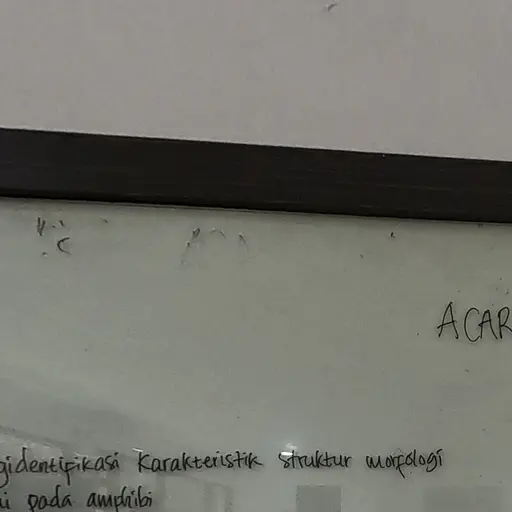 ACAR
gidentifikasi Karakteristik struktur morfologi
i pada amphibi